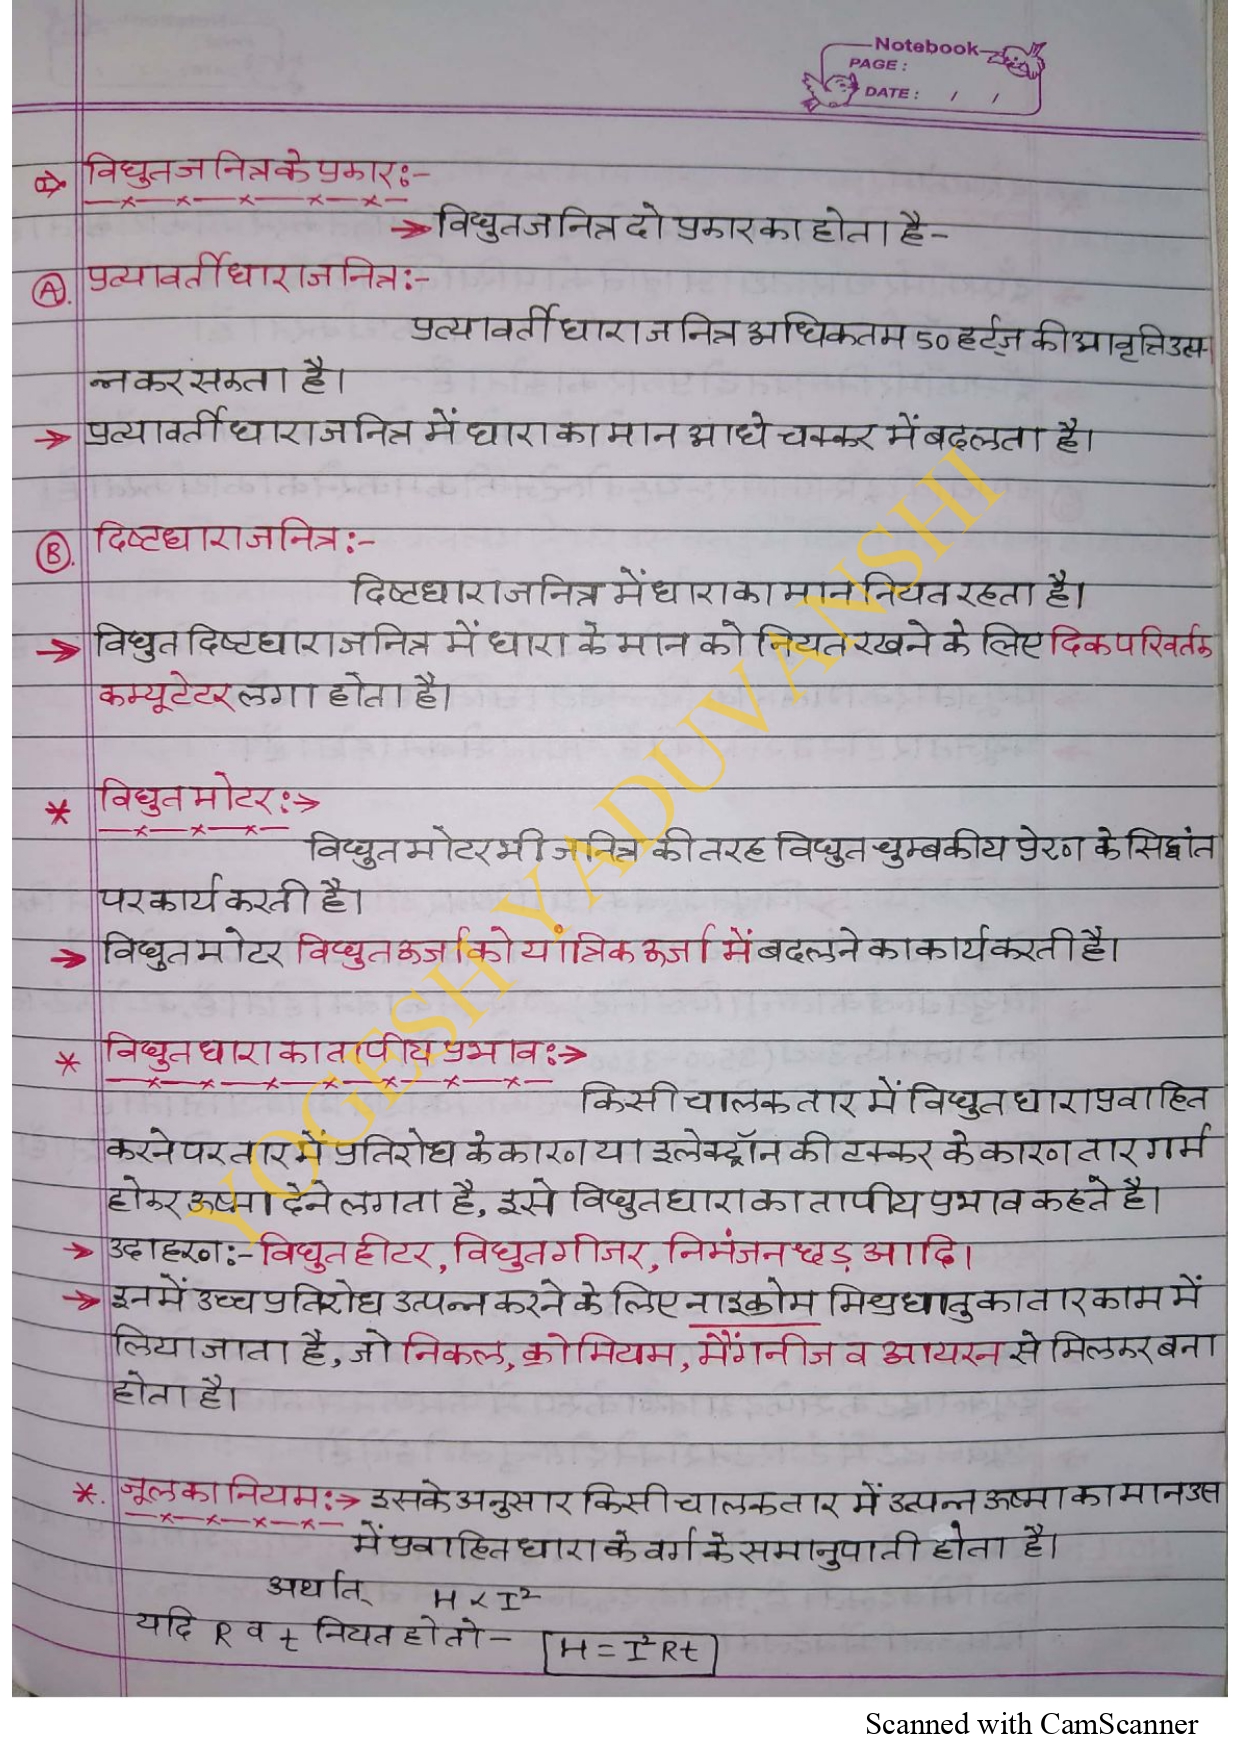 Notebook
PAGE :
DATE : / /
विधुत जनित्र के प्रकार :-
→ विधुत जनित्र दो प्रकार का होता है -
(A). प्रत्यावर्ती धारा जनित्र :-
प्रत्यावर्ती धारा जनित्र अधिकतम 50 हर्ट्ज़ की आवृत्ति उत्प-
न्न कर सकता है।
→ प्रत्यावर्ती धारा जनित्र में धारा का मान आधे चक्कर में बदलता है।
(B). दिष्टधारा जनित्र :-
दिष्टधारा जनित्र में धारा का मान नियत रहता है।
→ विधुत दिष्टधारा जनित्र में धारा के मान को नियत रखने के लिए दिक परिवर्तक
कम्यूटेटर लगा होता है।
* विधुत मोटर :→
विधुत मोटर भी जनित्र की तरह विधुत चुम्बकीय प्रेरण के सिद्वांत
पर कार्य करती है।
→ विधुत मोटर विधुत ऊर्जा को यांत्रिक ऊर्जा में बदलने का कार्य करती है।
* विधुत धारा का तापीय प्रभाव :→
किसी चालक तार में विधुत धारा प्रवाहित
करने पर तार में प्रतिरोध के कारण या इलेक्ट्रॉन की टक्कर के कारण तार गर्म
होकर ऊष्मा देने लगता है, इसे विधुत धारा का तापीय प्रभाव कहते है।
→ उदाहरण :- विधुत हीटर, विधुत गीजर, निमंजन छड़ आदि।
→ इनमें उच्च प्रतिरोध उत्पन्न करने के लिए नाइक्रोम मिश्रधातु का तार काम में
लिया जाता है, जो निकल, क्रोमियम, मैंगनीज व आयरन से मिलकर बना
होता है।
*. जूल का नियम :→ इसके अनुसार किसी चालक तार में उत्पन्न ऊष्मा का मान उस
में प्रवाहित धारा के वर्ग के समानुपाती होता है।
अर्थात् H ∝ I²
यदि R व t नियत हो तो - H = I²Rt
YOGESH YADUVANSHI
Scanned with CamScanner